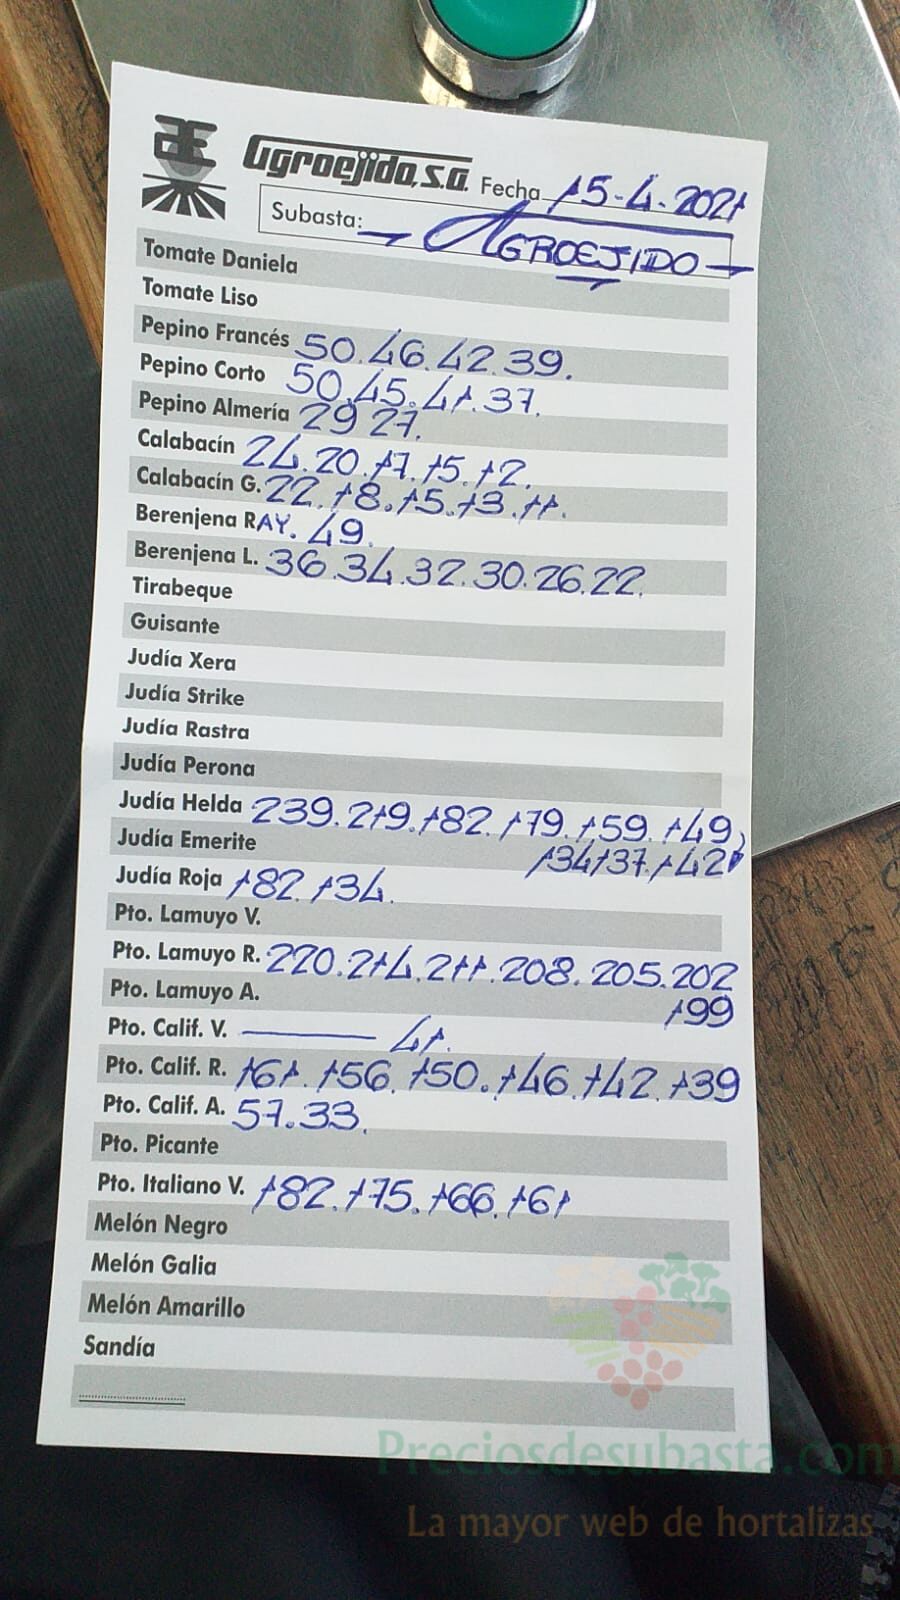 Agroejido, S.A. Fecha 15-4-2021
Subasta: - AGROEJIDO -
Tomate Daniela
Tomate Liso
Pepino Francés 50.46.42.39.
Pepino Corto 50.45.41.37.
Pepino Almería 29 27.
Calabacín 24.20.17.15.12.
Calabacín G. 22.18.15.13.11.
Berenjena RAY. 49.
Berenjena L. 36.34.32.30.26.22.
Tirabeque
Guisante
Judía Xera
Judía Strike
Judía Rastra
Judía Perona
Judía Helda 239.219.182.179.159.149,
Judía Emerite 134/137.142
Judía Roja 182.134.
Pto. Lamuyo V.
Pto. Lamuyo R. 220.214.211.208.205.202
Pto. Lamuyo A. 199
Pto. Calif. V. — 41.
Pto. Calif. R. 161.156.150.146.142.139
Pto. Calif. A. 57.33.
Pto. Picante
Pto. Italiano V. 182.175.166.161
Melón Negro
Melón Galia
Melón Amarillo
Sandía
Preciosdesubasta.com
La mayor web de hortalizas